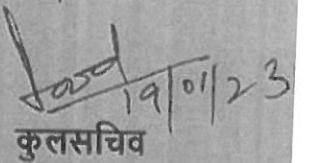 19/01/23
कुलसचिव